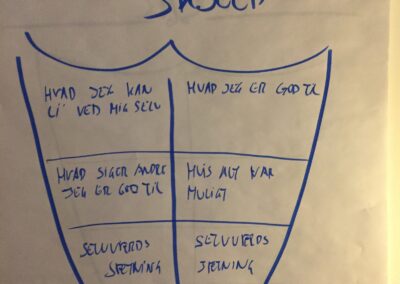 SKJOLD
HVAD JEG KAN
LI' VED MIG SELV
HVAD JEG ER GOD TIL
HVAD SIGER ANDRE
JEG ER GOD TIL
HVIS ALT VAR
MULIGT
SELVVÆRDS
SÆTNING
SELVVÆRDS
SÆTNING